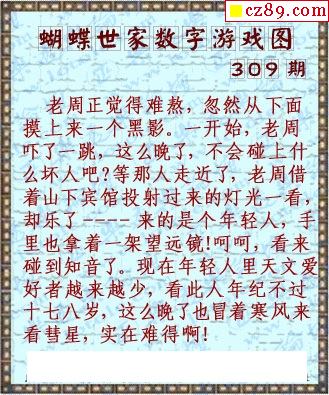 cz89.com
蝴蝶世家数字游戏图
309 期
老周正觉得难熬，忽然从下面
摸上来一个黑影。一开始，老周
吓了一跳，这么晚了，不会碰上什
么坏人吧?等那人走近了，老周借
着山下宾馆投射过来的灯光一看，
却乐了---- 来的是个年轻人，手
里也拿着一架望远镜!呵呵，看来
碰到知音了。现在年轻人里天文爱
好者越来越少，看此人年纪不过
十七八岁，这么晚了也冒着寒风来
看彗星，实在难得啊!